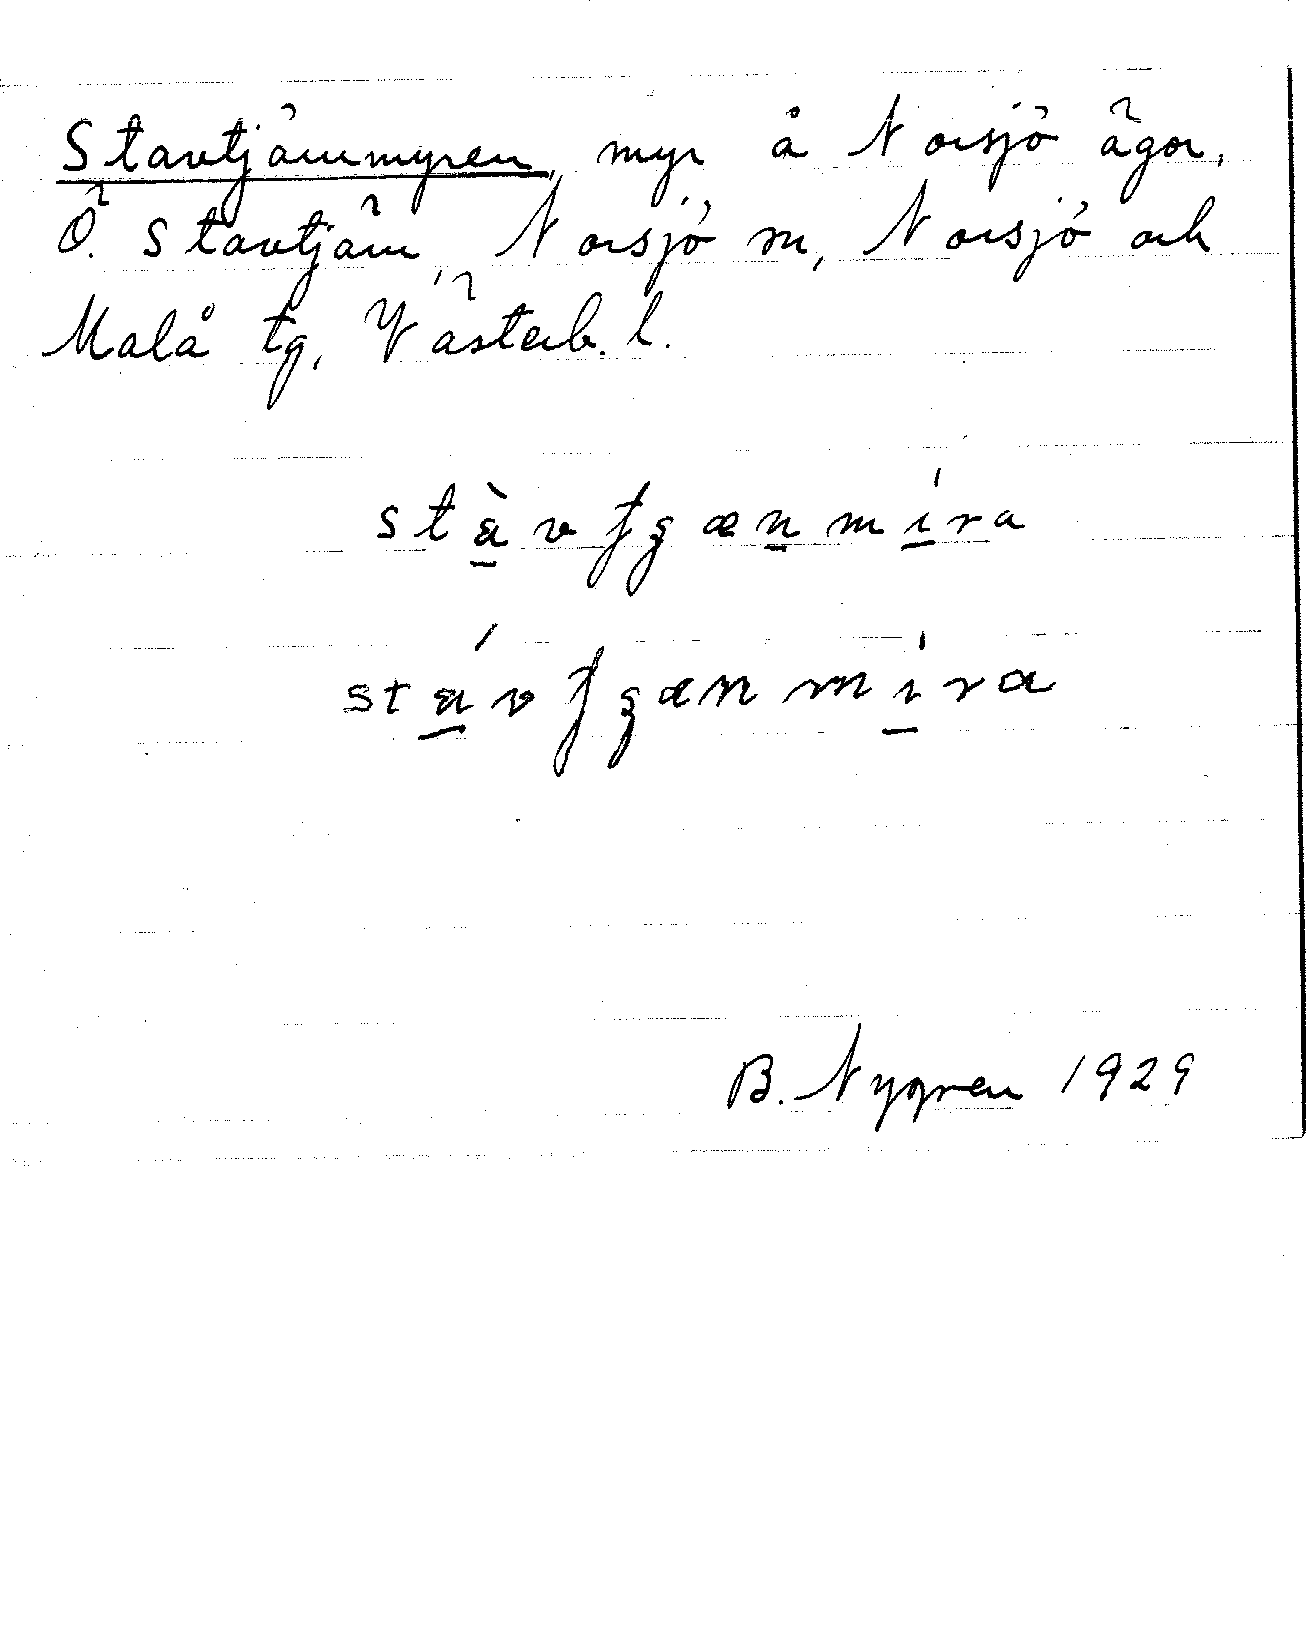 Stavtjärnmyren, myr å Norsjö ägor,
Ö. Stavtjärn, Norsjö sn, Norsjö och
Malå tg, Västerb. l.
stàvʃgænmíra
stávʃgænmíra
B. Nygren 1929